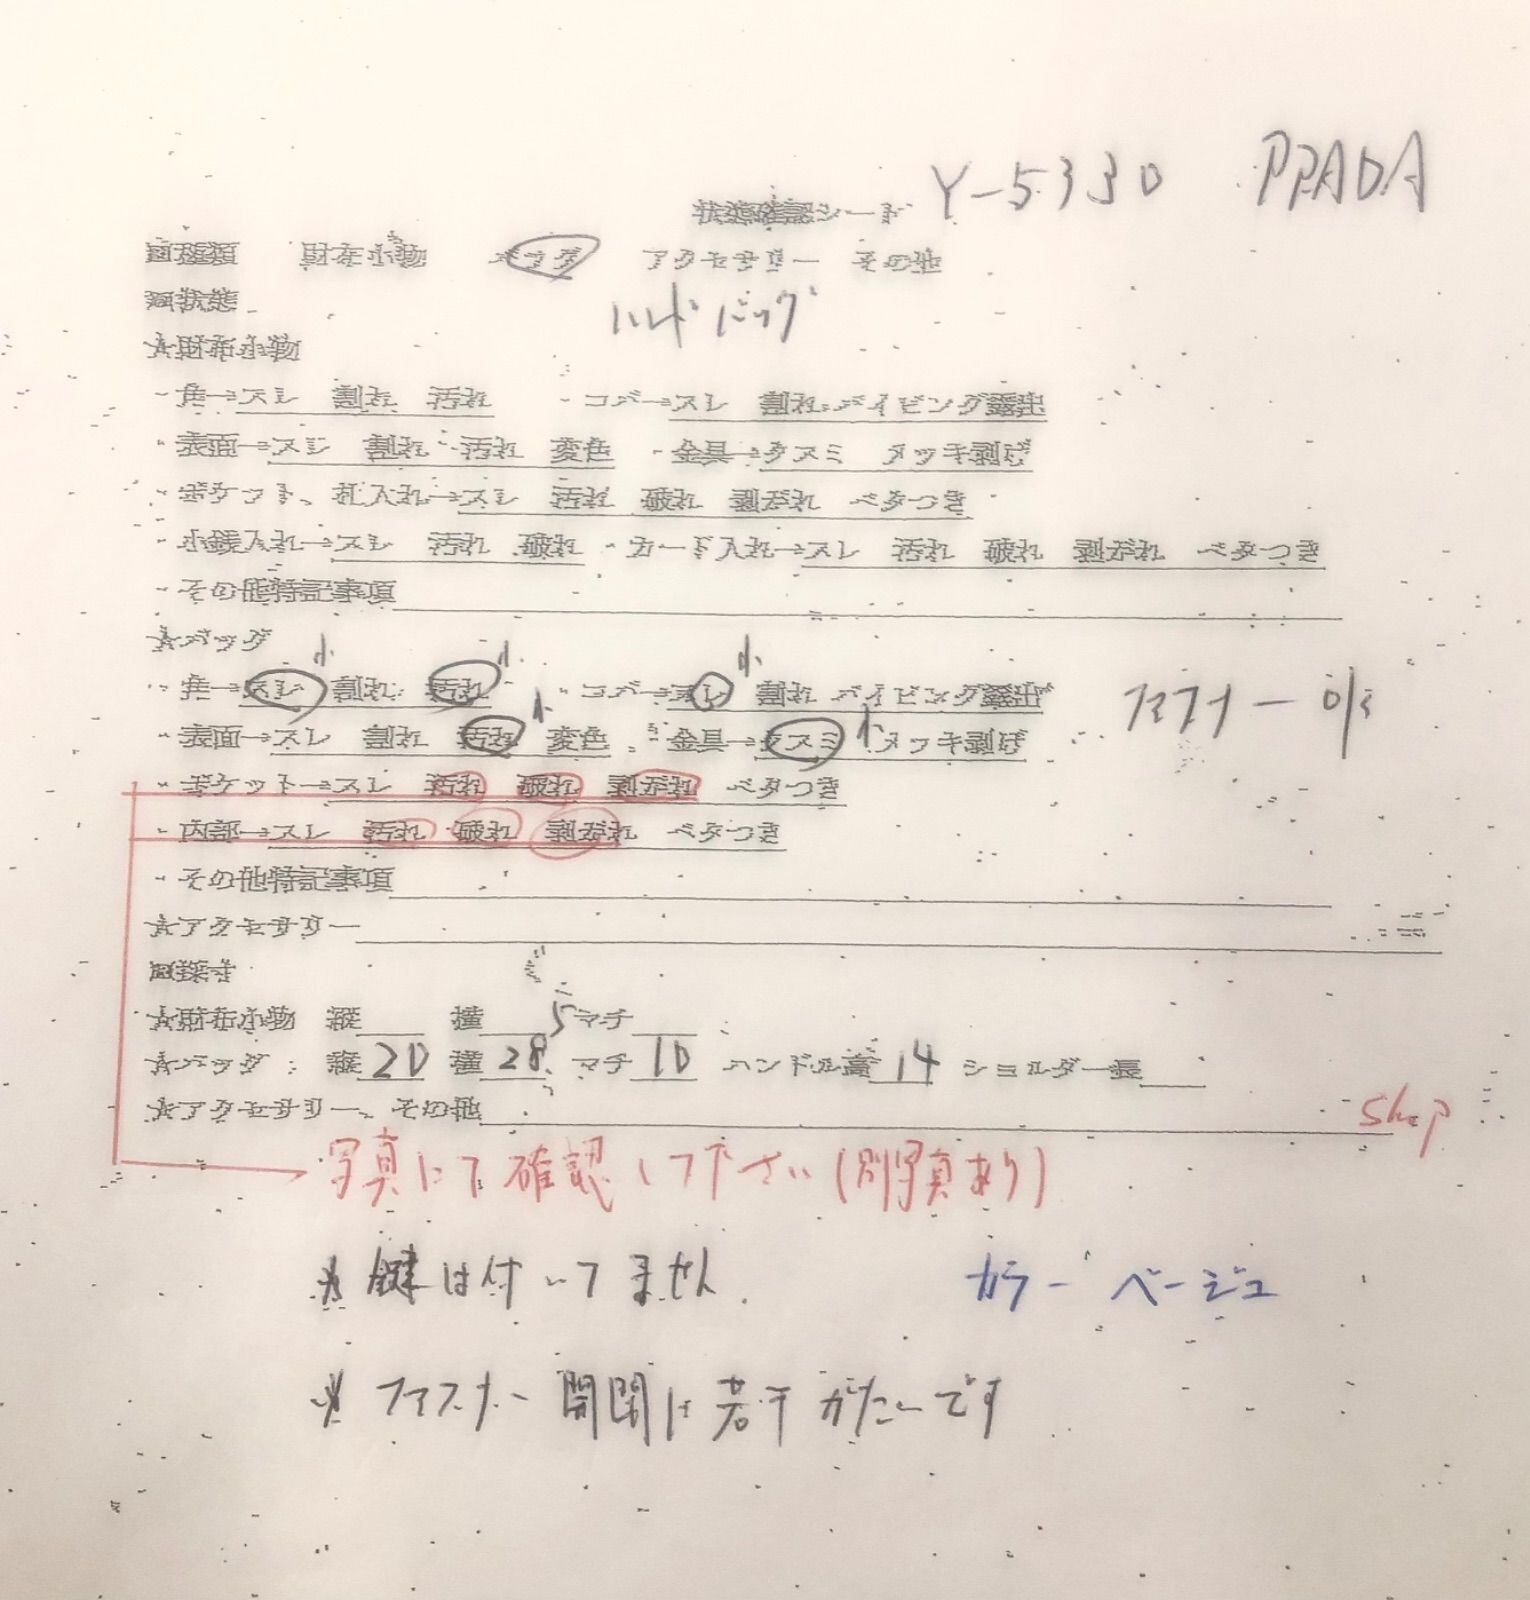 Y-5330 PRADA
状態確認シート
■種類 財布小物 バッグ アクセサリー その他
■状態
ハンドバッグ
★財布小物
・角→スレ 割れ 汚れ ・コバ→スレ 割れ パイピング露出
・表面→スレ 割れ 汚れ 変色 ・金具→クスミ メッキ剥げ
・ポケット、札入れ→スレ 汚れ 破れ 剥がれ ベタつき
・小銭入れ→スレ 汚れ 破れ ・カード入れ→スレ 汚れ 破れ 剥がれ ベタつき
・その他特記事項
★バッグ
小 小 小
・角→スレ 割れ 汚れ ・コバ→スレ 割れ パイピング露出 ファスナー
小 小
・表面→スレ 割れ 汚れ 変色 ・金具→クスミ メッキ剥げ
・ポケット→スレ 汚れ 破れ 剥がれ ベタつき
・内部→スレ 汚れ 破れ 剥がれ ベタつき
・その他特記事項
★アクセサリー
■採寸
★財布小物 縦 横 マチ
★バッグ 縦20 横28.5 マチ10 ハンドル高14 ショルダー長
★アクセサリー、その他
写真にて確認して下さい(別写真あり)
※鍵は付いてません. カラー ベージュ
※ファスナー開閉は若干がたいです